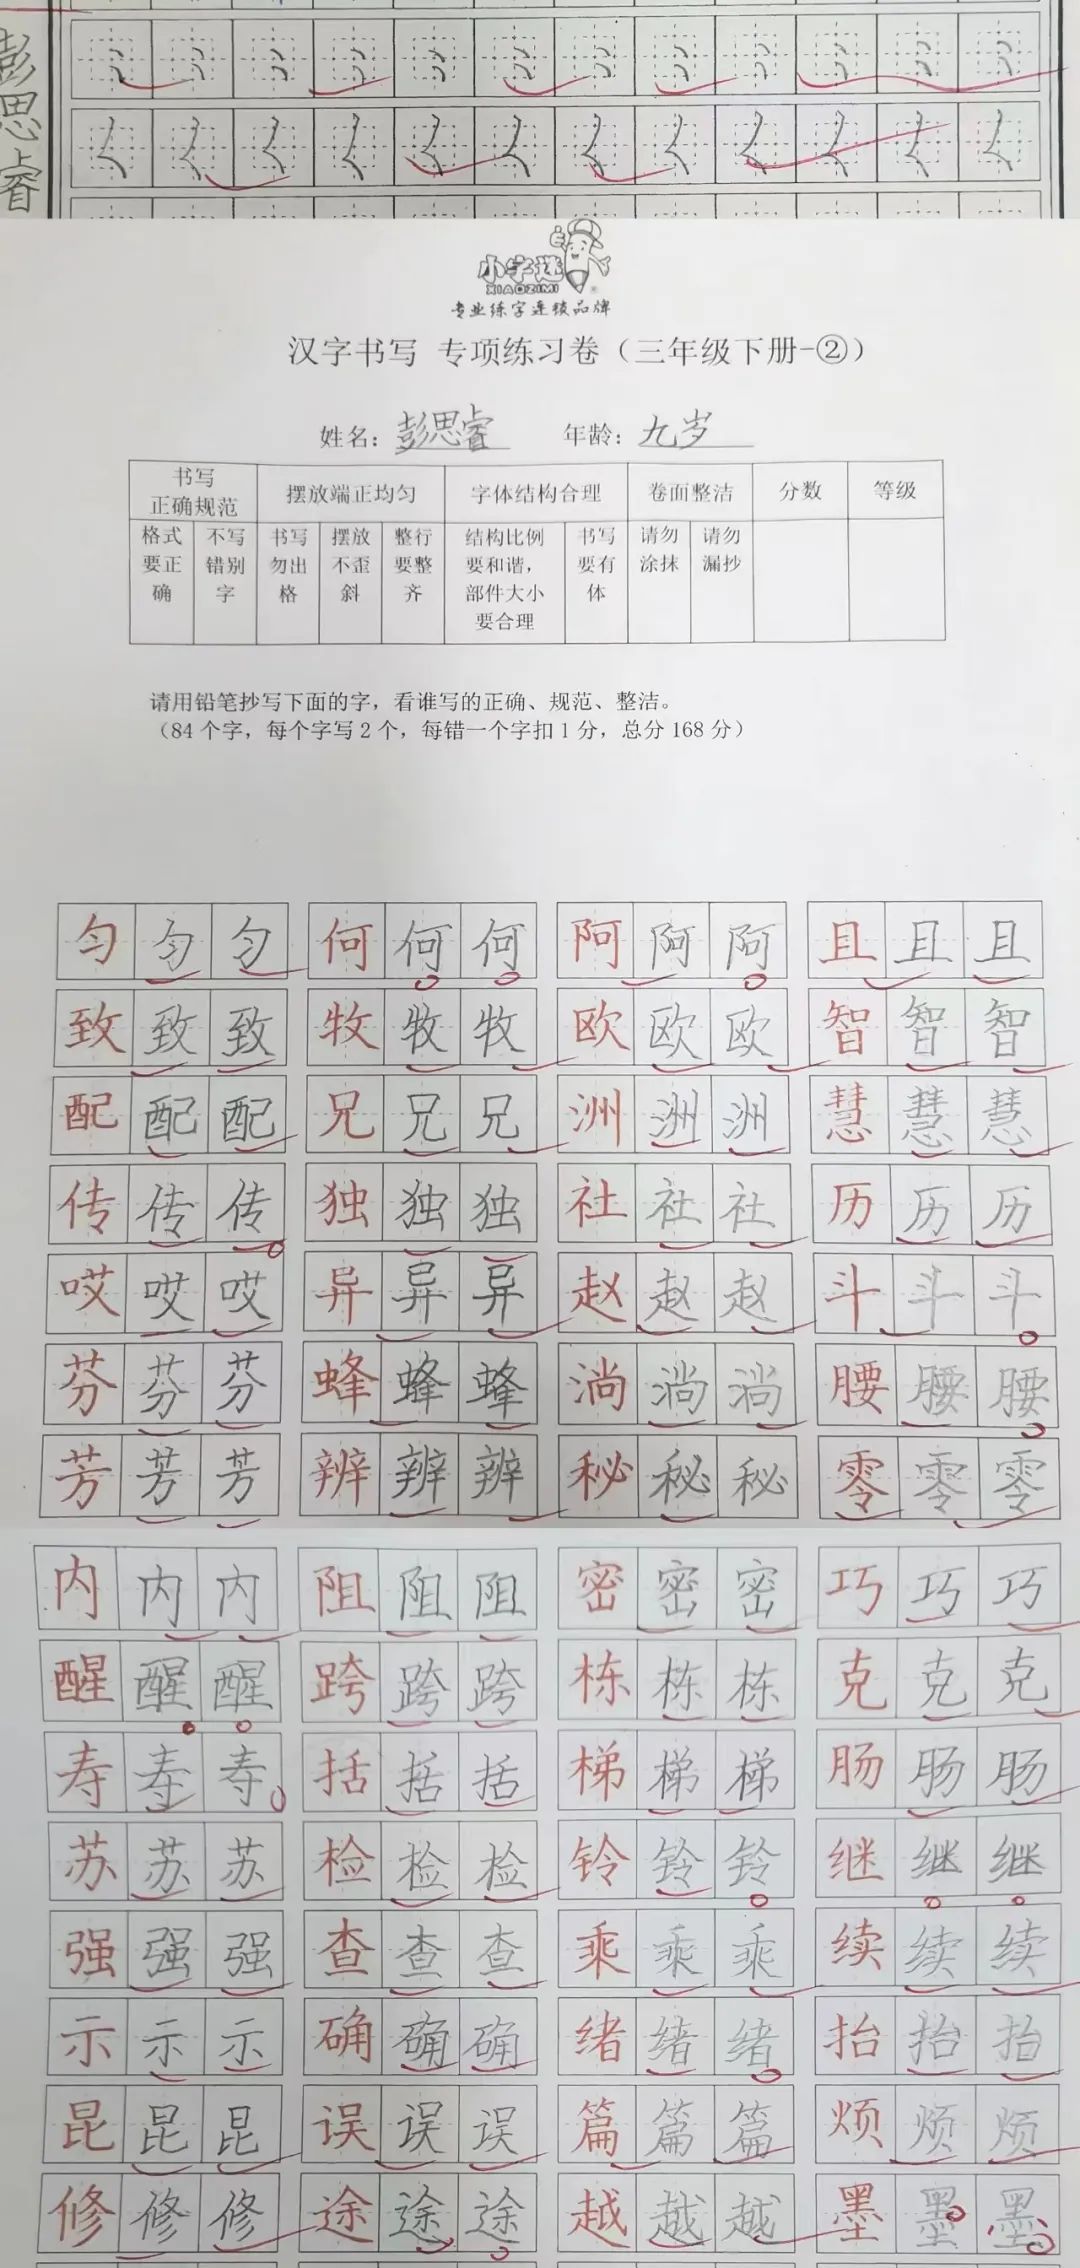 彭思睿
小字迷
XIAOZIMI
专业练字连锁品牌
汉字书写 专项练习卷（三年级下册-②）
姓名：彭思睿 年龄：九岁
书写正确规范 摆放端正均匀 字体结构合理 卷面整洁 分数 等级
格式要正确 不写错别字 书写勿出格 摆放不歪斜 整行要整齐 结构比例要和谐，部件大小要合理 书写要有体 请勿涂抹 请勿漏抄
请用铅笔抄写下面的字，看谁写的正确、规范、整洁。
（84 个字，每个字写 2 个，每错一个字扣 1 分，总分 168 分）
匀匀匀 何何何 阿阿阿 且且且
致致致 牧牧牧 欧欧欧 智智智
配配配 兄兄兄 洲洲洲 慧慧慧
传传传 独独独 社社社 历历历
哎哎哎 异异异 赵赵赵 斗斗斗
芬芬芬 蜂蜂蜂 淌淌淌 腰腰腰
芳芳芳 辨辨辨 秘秘秘 零零零
内内内 阻阻阻 密密密 巧巧巧
醒醒醒 跨跨跨 栋栋栋 克克克
寿寿寿 括括括 梯梯梯 肠肠肠
苏苏苏 检检检 铃铃铃 继继继
强强强 查查查 乘乘乘 续续续
示示示 确确确 绪绪绪 抬抬抬
昆昆昆 误误误 篇篇篇 烦烦烦
修修修 途途途 越越越 墨墨墨